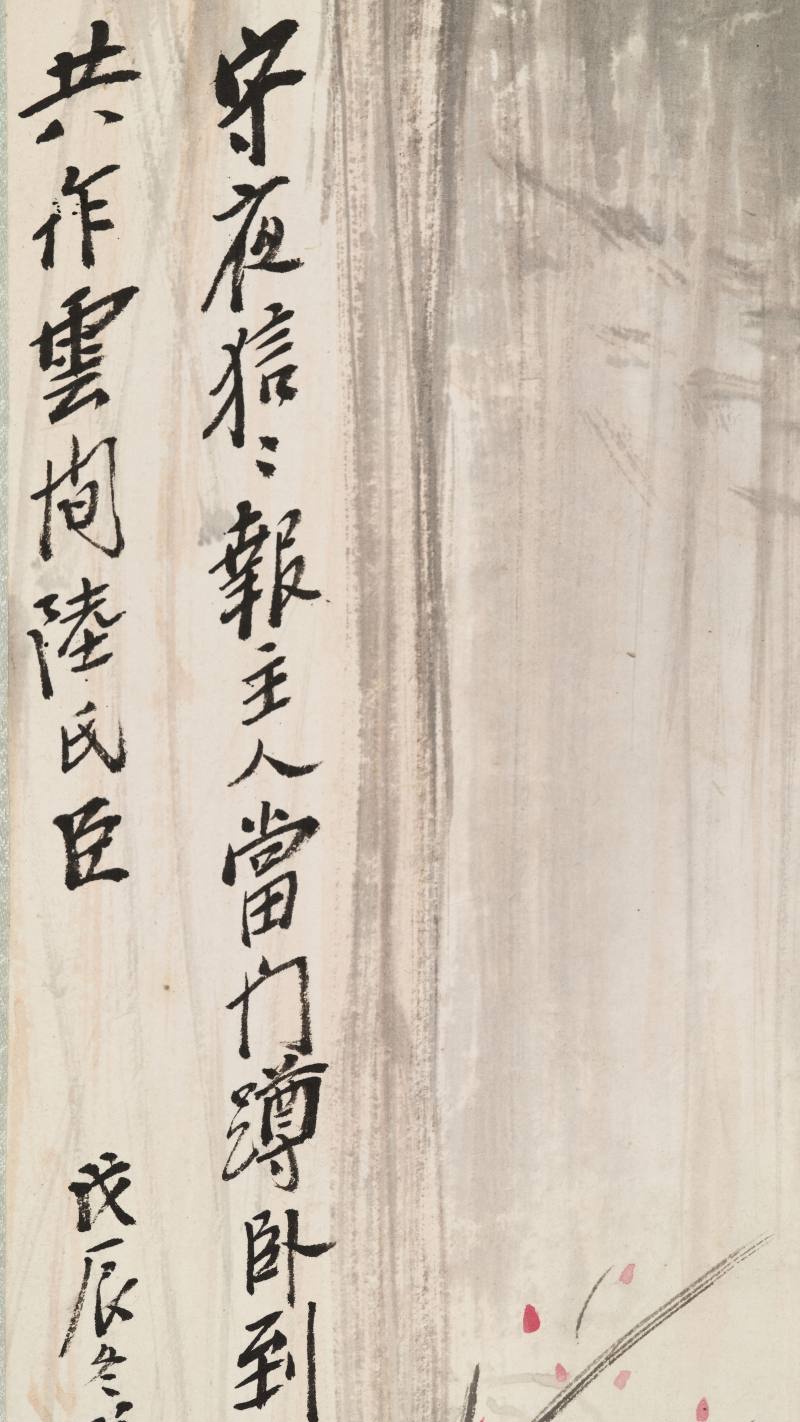 守夜狺〻報主人當门蹲卧到
共作雲間陸氏臣
戊辰冬